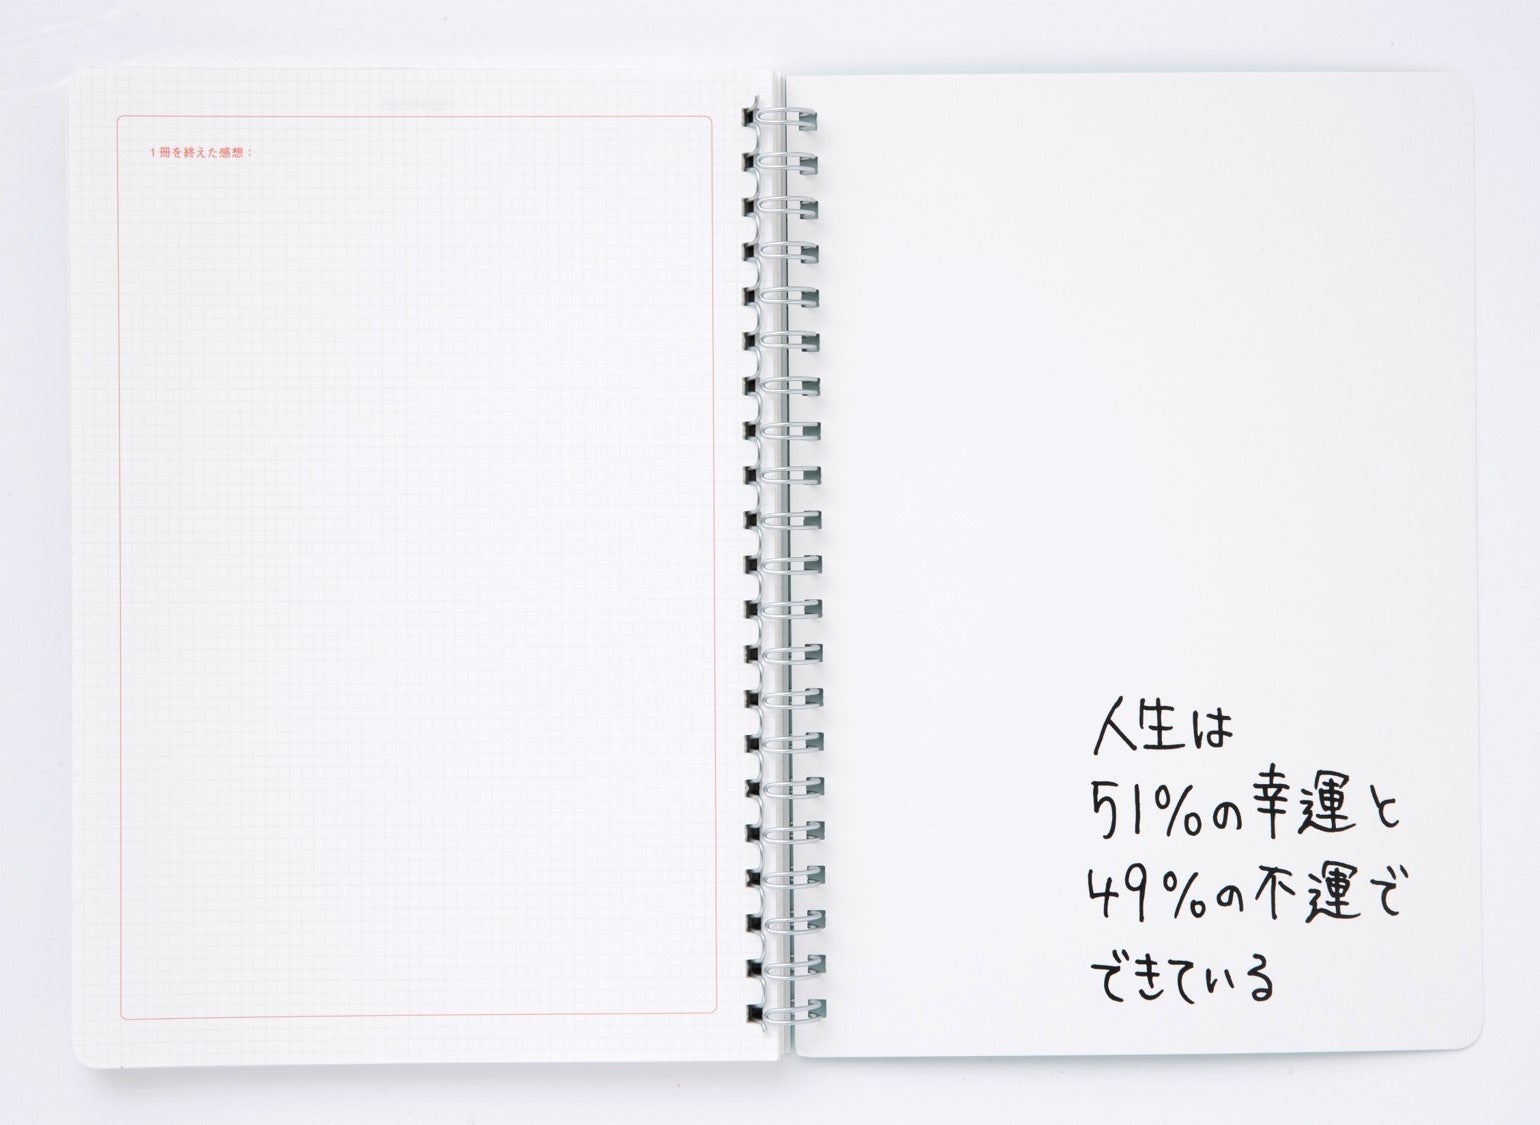 1冊を終えた感想：
人生は
51%の幸運と
49%の不運で
できている